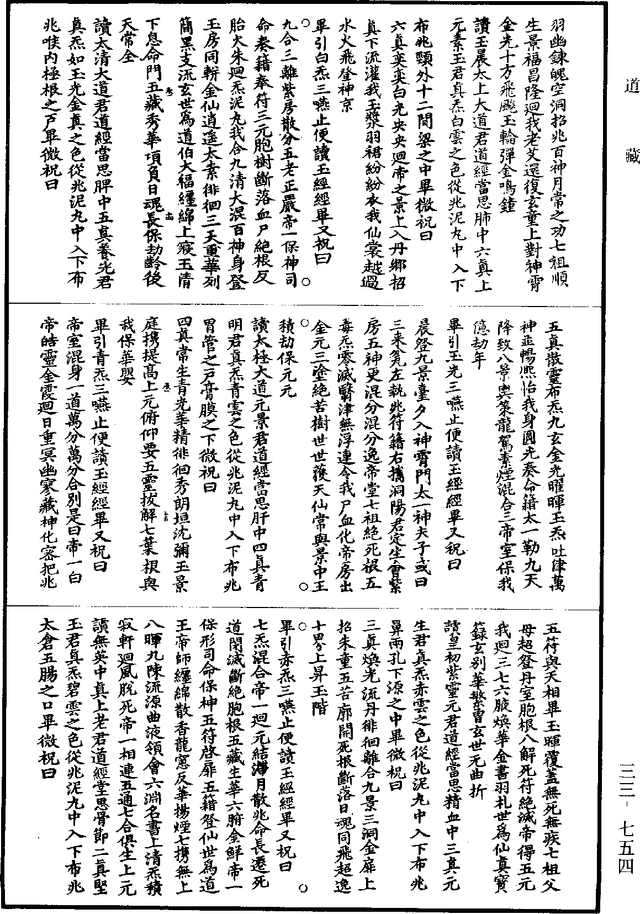 道藏
羽幽鍊魄空洞招兆百神月常之功七祖順
生景福昌隆迴我老艾還復玄童上對神霄
金光十方飛飈玉輪彈金鳴鐘
讀玉晨太上大道君道經當思肺中六真上
元素玉君真炁白雲之色從兆泥丸中入下
布兆頸外十二間梁之中畢微祝曰
六真奕奕白光央央迴帝之景上入丹鄉招
真下流灌我玉漿羽裙紛紛衣我仙裳越過
水火飛登神京
畢引白炁三嚥止便讀玉經經畢又祝曰
九合三離紫房散分五老正嚴帝一保神司
命奏籍奉符三元胞樹斷落血尸絕根反
胎火朱迴炁泥丸我合九清大混百神身登
玉房同軿金仙逍遙太素徘徊三天重華列
簡黑支流玄世為道伯大福纏綿上寢玉清
下息命門五藏秀華項負日魂長保劫齡後
天常全
讀太清大道君道經當思脾中五真養光君
真炁如玉光金真之色從兆泥丸中入下布
兆喉内極根之戶畢微祝曰
五真散靈布炁九玄金光曜暉玉炁吐津萬
神並暢熙怡我身圓光奏命籍太一勒九天
降致八景輿策龍駕素煙混合三帝室保我
億劫年
畢引玉光三嚥止便讀玉經經畢又祝曰
晨登九景臺夕入神霄門太一神夫子或曰
三來㝹左執兆符籍右攜洞陽君定生會紫
房五神更混分混分逸帝堂七祖絕死根五
毒炁零滅醫津無浮連令我尸血化帝房出
金元三塗絕苦樹世世護天仙常與景中王
積劫保元元
讀太極大道元景君道經當思肝中四真青
明君真炁青雲之色從兆泥丸中入下布兆
胃管之戶膏膜之下微祝曰
四真常生青光華精徘徊秀朗垣沈彌玉景
庭携提高上元俯仰要五靈拔解七葉根與
我保華嬰
畢引青炁三嚥止便讀玉經經畢又祝曰
帝室混身一道萬分萬分合別是曰帝一白
帝皓靈金霞迴日重冥幽寥藏神化密把兆
五符與天相畢玉暉覆蓋無死無疾七祖父
母超登丹室胞根八解死符絕滅帝得五元
我迴三七六腋煥華金書羽札世為仙真寳
籙玄別華繁曹玄世无曲折
讀皇初紫靈元君道經當思精血中三真元
生君真炁赤雲之色從兆泥丸中入下布兆
鼻兩孔下源之中畢微祝曰
三真煥光流丹徘徊離合九景三洞金扉上
招朱童五苦廓開死根斷落日魂同飛超逸
十界上昇玉階
畢引赤炁三嚥止便讀玉經經畢又祝曰
七炁混合帝一迴元結溥月散兆命長遷死
道閇滅斷絕胞根五藏生華六腑金鮮帝一
保形司命保神五符啓扉五籍登仙世為道
王帝師纏綿散香龍窓反華揚煙七携無上
八暉九陳流源曲液領會六淵名書上清炁積
寂軒迴風脫死帝一相連五通七合俱生上元
讀無英中真上老君道經堂思骨節二真堅
玉君真炁碧雲之色從兆泥丸中入下布兆
太倉五腸之口畢微祝曰
三三-七五四